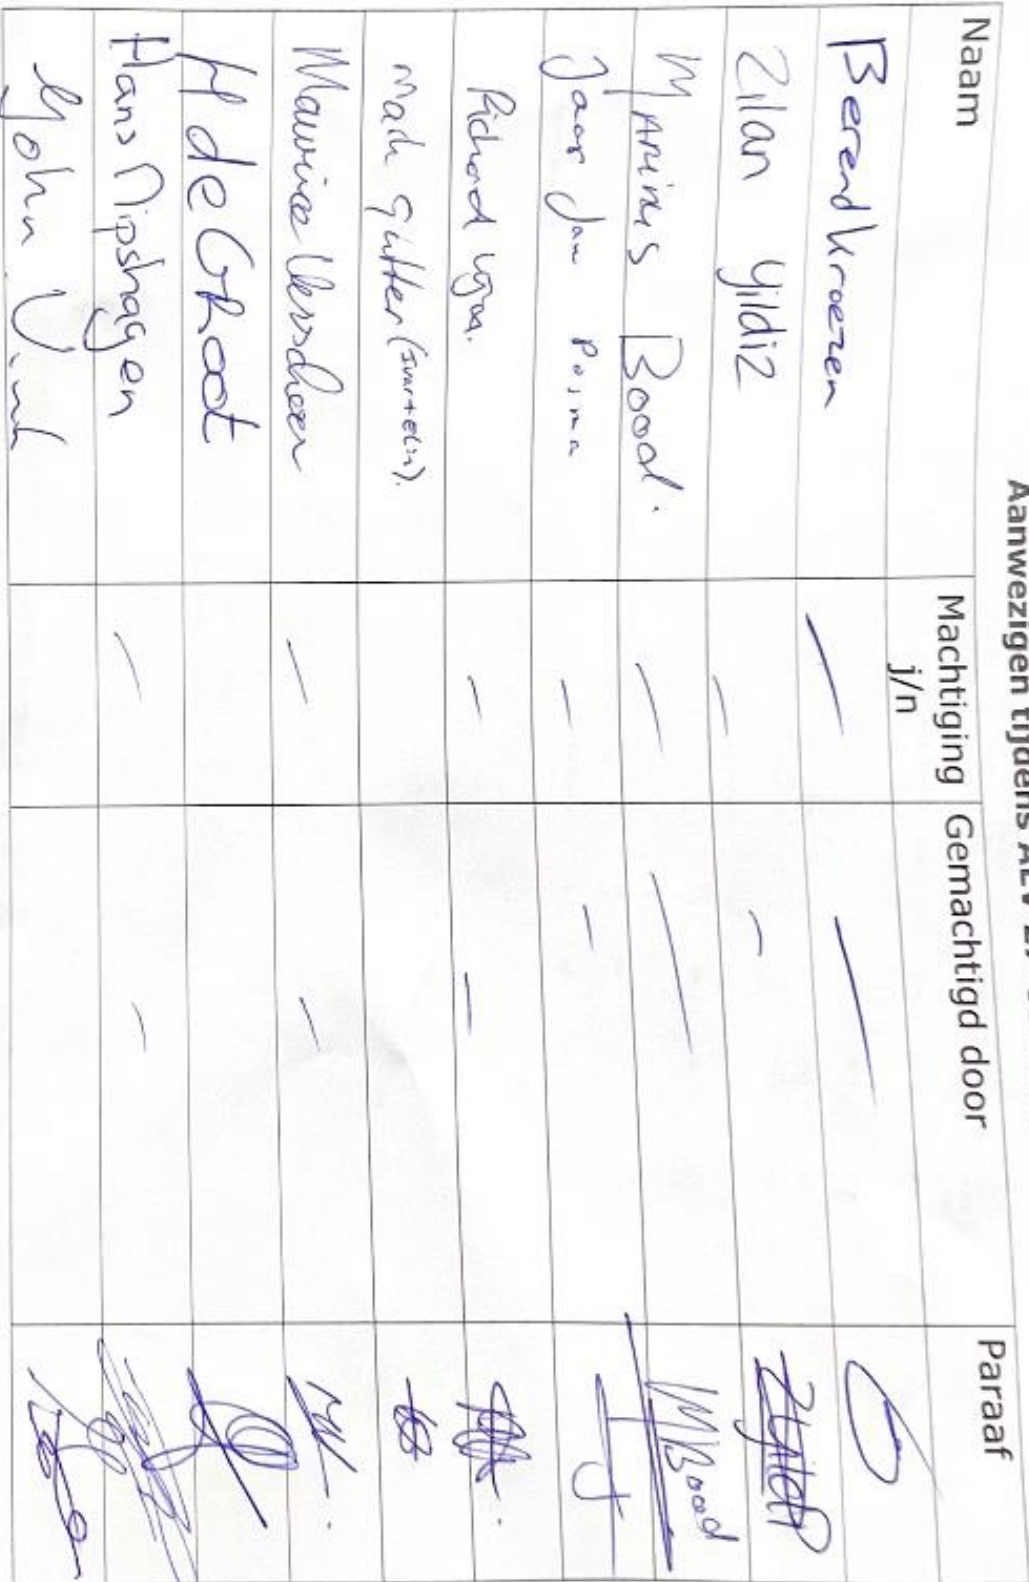 Aanwezigen tijdens ALV
Naam Machtiging j/n Gemachtigd door Paraaf
Berend Kroezen — —
Zilan Yildiz — —
Marinus Bood. — — MBood
Jaap Jan Posma — —
Richard — —
Mark
Maurice Verschoor — —
H de Groot
Hans Nipshagen — —
John Vink